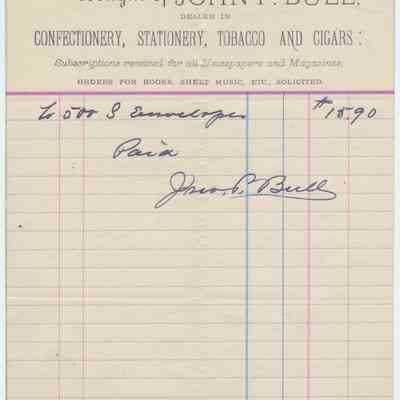 Bought of JOHN P. BULL,
DEALER IN
CONFECTIONERY, STATIONERY, TOBACCO AND CIGARS:
Subscriptions received for all Newspapers and Magazines.
ORDERS FOR BOOKS, SHEET MUSIC, ETC., SOLICITED.
to 500 S Envelopes $15.90
Paid
Jno. P. Bull